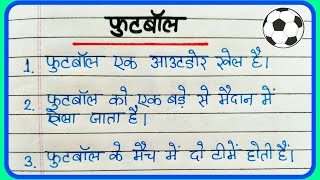 फुटबॉल
1. फुटबॉल एक आउटडोर खेल है।
2. फुटबॉल को एक बड़े से मैदान में
खेला जाता है।
3. फुटबॉल के मैच में दो टीमें होती हैं।